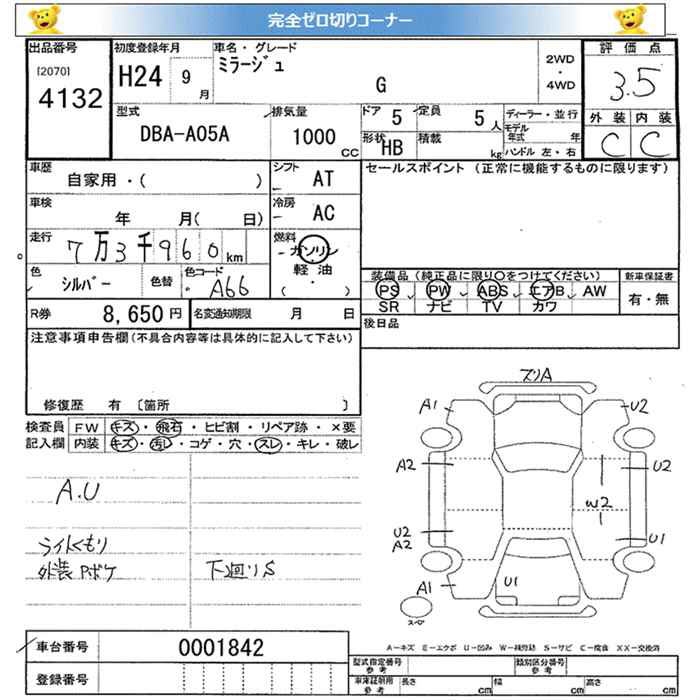 完全ゼロ切りコーナー
出品番号 初度登録年月 車名・グレード 2WD・4WD 評価点
[2070] 4132 H24 9月 ミラージュ G 3.5
外装 内装
C C
型式 排気量 ドア 5 定員 5人 ディーラー・並行
DBA-A05A 1000CC 形状 HB 積載 kg モデル年式 年
ハンドル 左・右
車歴 シフト セールスポイント (正常に機能するものに限ります)
自家用・( ) AT
車検 冷房
年 月( 日) AC
走行 燃料
7万3千960km ガソリン
軽油
( ・ )
色 シルバー 色替 色コード A66
装備品 (純正品に限り○をつけてください) 新車保証書
PS PW ABS エアB AW 有・無
SR ナビ TV カワ
R券 8,650円 名変通知期限 月 日
後日品
注意事項申告欄 (不具合内容等は具体的に記入して下さい)
修復歴 有 〔箇所 〕
検査員 FW キズ・飛石・ヒビ割・リペア跡・×要
記入欄 内装 キズ・汚レ・コゲ・穴・スレ・キレ・破レ
A.U
ライトくもり
外装Pボケ 下廻りS
ズリA
A1 U2
A2 U2
W2
U2 U1
A2
A1 U1
スペア
A−キズ E−エクボ U−凹み W−補修跡 S−サビ C−腐食 XX−交換済
車台番号 0001842
登録番号
型式指定番号 参考 類別区分番号 参考
車庫証明用 参考 長さ cm 幅 cm 高さ cm